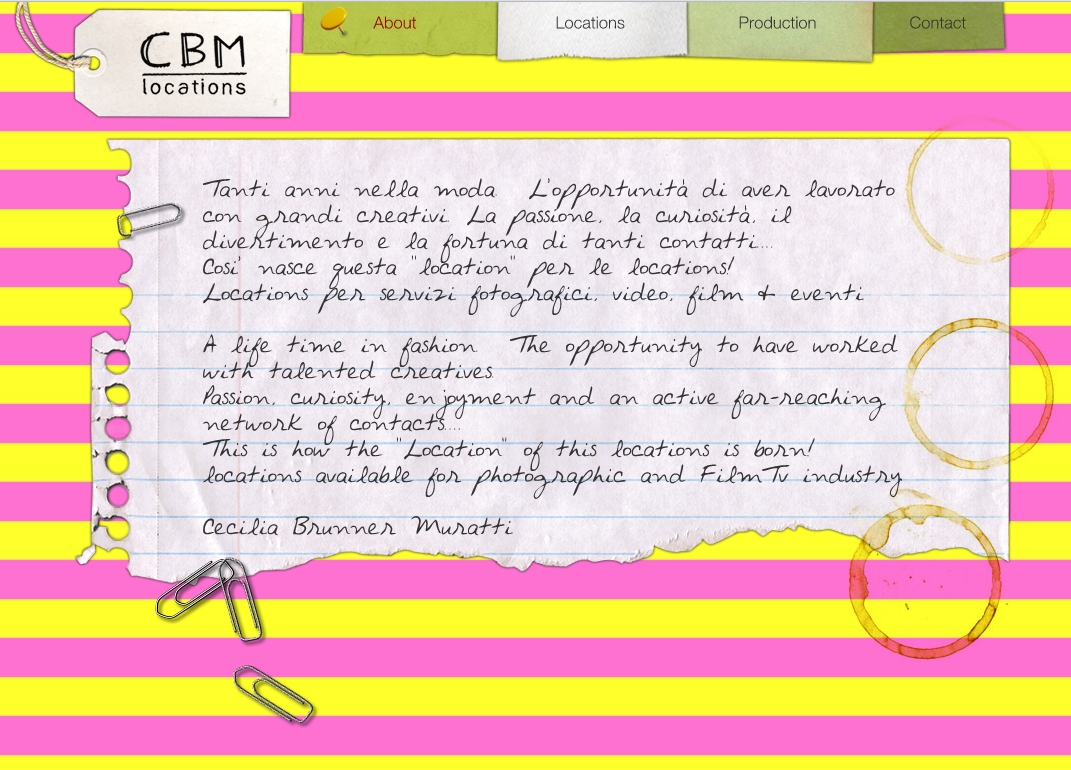 CBM
locations
About
Locations
Production
Contact
Tanti anni nella moda L'opportunità di aver lavorato
con grandi creativi La passione, la curiosità, il
divertimento e la fortuna di tanti contatti...
Cosi' nasce questa "location" per le locations!
Locations per servizi fotografici, video, film & eventi
A life time in fashion The opportunity to have worked
with talented creatives
Passion, curiosity, enjoyment and an active far-reaching
network of contacts....
This is how the "Location" of this locations is born!
locations available for photographic and FilmTv industry
Cecilia Brunner Muratti